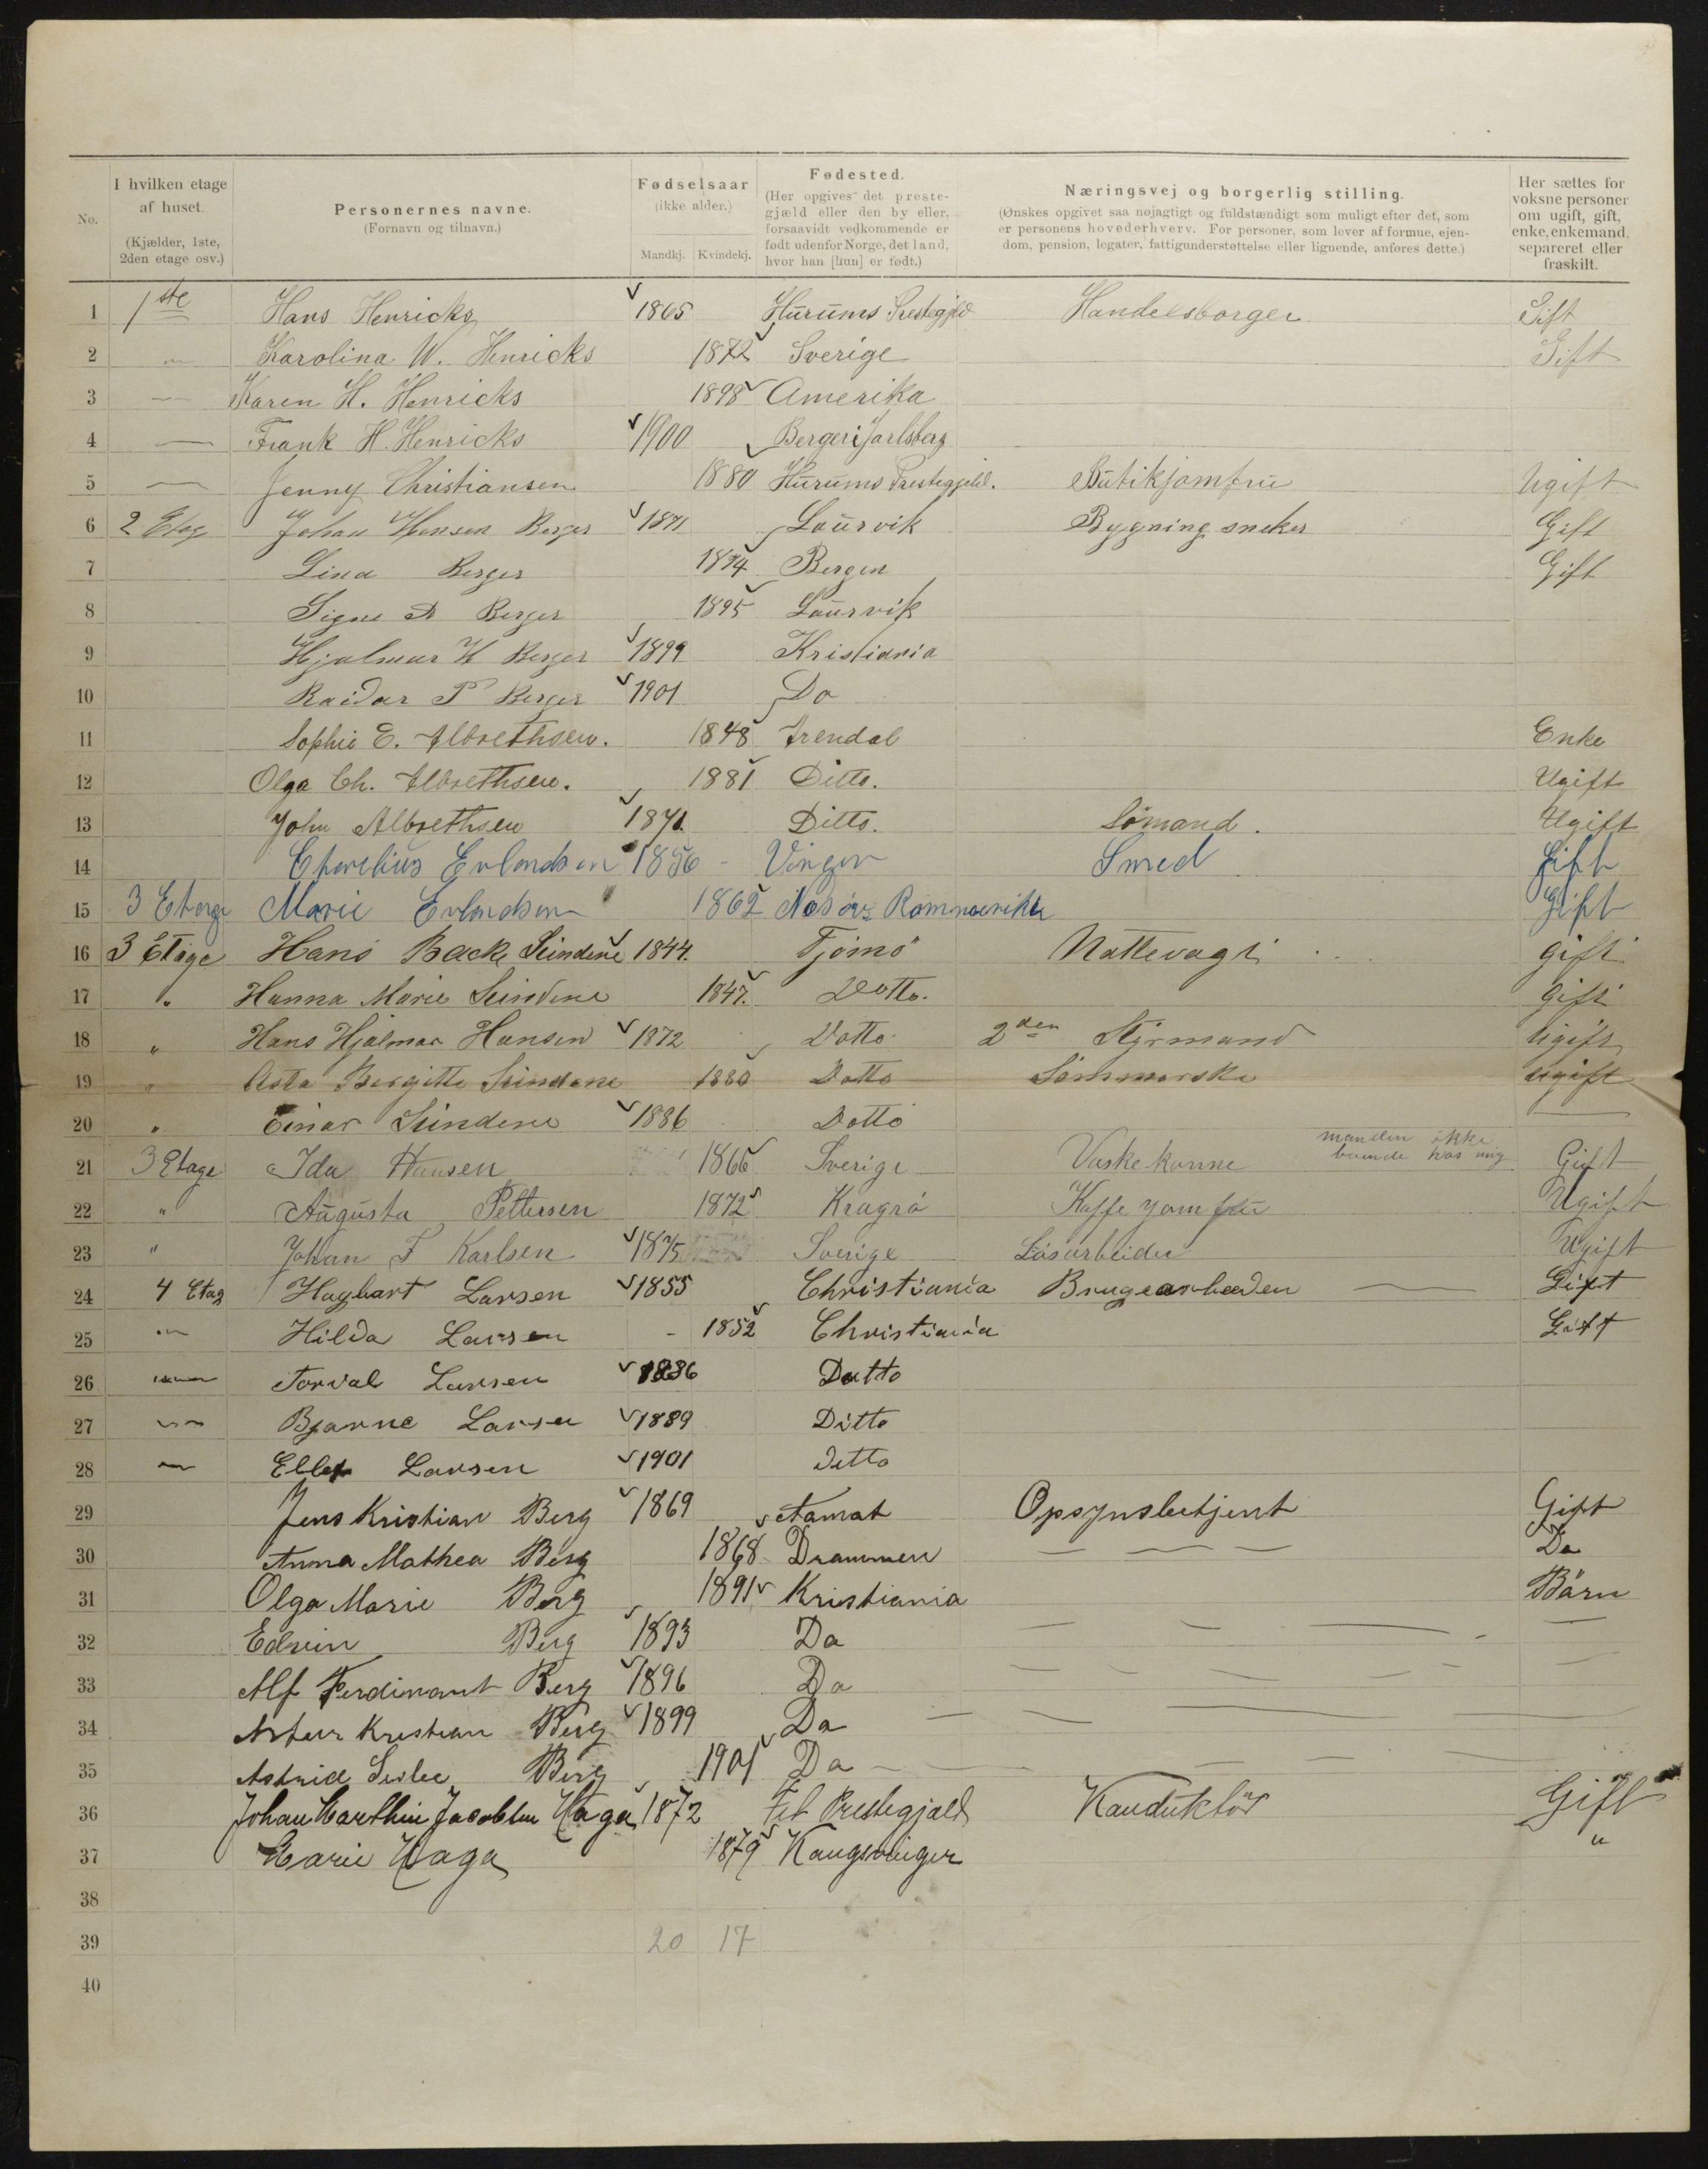 No. | I hvilken etage af huset. (Kjælder, 1ste, 2den etage osv.) | Personernes navne. (Fornavn og tilnavn.) | Fødselsaar (ikke alder.) Mandkj. Kvindekj. | Fødested. (Her opgives det prestegjæld eller den by eller, forsaavidt vedkommende er født udenfor Norge, det land, hvor han [hun] er født.) | Næringsvej og borgerlig stilling. (Ønskes opgivet saa nøjagtigt og fuldstændigt som muligt efter det, som er personens hovederhverv. For personer, som lever af formue, ejendom, pension, legater, fattigunderstøttelse eller lignende, anføres dette.) | Her sættes for voksne personer om ugift, gift, enke, enkemand, separeret eller fraskilt.
1 1ste Hans Henricks 1865 Hurums Prestegjeld Handelsborger Gift
2 " Karolina W. Henricks 1872 Sverige Gift
3 — Karen H. Henricks 1898 Amerika
4 — Frank H. Henricks 1900 Berger i Jarlsberg
5 — Jenny Christiansen 1880 Hurums Prestegjeld. Butikjomfru Ugift
6 2 Etag Johan Hansen Berger 1871 Laurvik Bygning sneker Gift
7 Lina Berger 1874 Bergen Gift
8 Signe Berger 1895 Laurvik
9 Hjalmar H Berger 1899 Kristiania
10 Raidar P Berger 1901 Do
11 Sophie E. Albrethsen. 1848 Arendal Enke
12 Olga Ch. Albrethsen. 1881 Ditto. Ugift
13 John Albrethsen 1871. Ditto. Sømand. Ugift
14 Erlandsen 1856 Vinger Smed Gift
15 3 Etage Marie Erlandsen 1862 Nes øv: Rommerike Gift
16 3 Etage Hans Back Sundene 1844. Tjømø Nattevagt gift
17 " Hanna Marie Sundene 1847. Dotto. gift
18 " Hans Hjalmar Hansen 1872 Dotto 2den Styrmand Ugift
19 " Asta Bergitte Sundene 1880 Dotto Sømmerske ugift
20 " Einar Sundene 1886 Dotto —
21 3 Etage Ida Hansen 1866 Sverige Vaskekonne manden ikke boende hos mig Gift
22 " Augusta Pettersen 1872 Kragrø Kaffe yomfru Ugift
23 " Johan F Karlsen 1875 Sverige Løsarbeider Ugift
24 4 Etag Hagbart Larsen 1855 Christiania Brugearbeeden — Gift
25 " Hilda Larsen - 1852 Christiania Gift
26 — Torval Larsen 1886 Ditto
27 — Bjarne Larsen 1889 Ditto
28 — Larsen 1901 Ditto
29 Jens Kristian Berg 1869 Opsynsbetjent Gift
30 Anna Mathea Berg 1868 Drammen — — — Do
31 Olga Marie Berg 1891 Kristiania Børn
32 Edvin Berg 1893 Do — — — —
33 Alf Ferdinant Berg 1896 Do — — — —
34 Artur Kristian Berg 1899 Do — — — —
35 Astrid Berg 1901 Do — — — —
36 Johan Marthin Jacobsen Haga 1872 Fet Prestegjæld Kanduktør Gift
37 Marie Haga 1879 Kangsvinger "
38
39 20 17
40